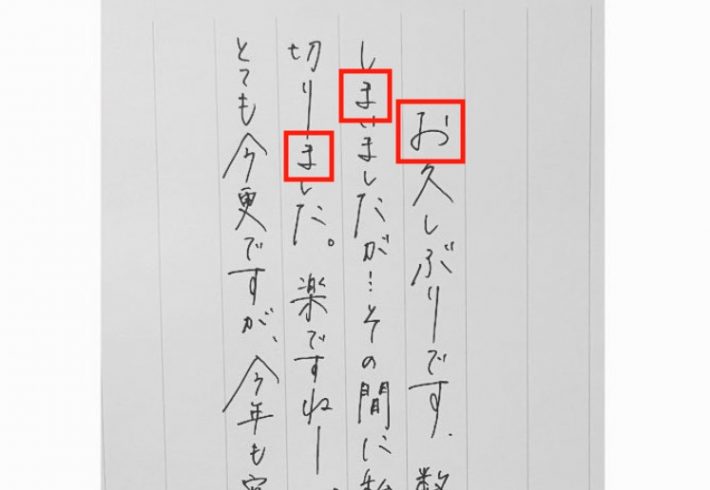 お久しぶりです。数
しまいましたが…その間に
切りました。楽ですねー
とても今更ですが、今年も